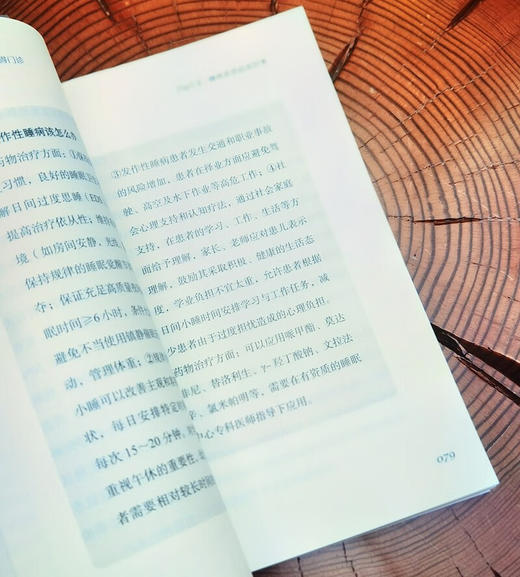 门诊
作性睡病该怎么办
药物治疗方面：①保
习惯，良好的睡眠
解日间过度思睡（ED
提高治疗依从性；维持
境（如房间安静，光线
保持规律的睡眠觉醒
夺；保证充足高质量
眠时间≥6小时，条件
避免不当使用镇静催眠
动，管理体重；②
小睡可以改善主观和
状，每日安排特定
每次15～20分钟，
重视午休的重要性，
者需要相对较长时间
③发作性睡病患者发生交通和职业事故
的风险增加，患者在择业方面应避免驾
驶、高空及水下作业等高危工作；④社
会心理支持和认知疗法，通过社会家庭
支持，在患者的学习、工作、生活等方
面给予理解，家长、老师应对患儿表示
理解，鼓励其采取积极、健康的生活态
度，学业负担不宜太重，允许患者根据
日间小睡时间安排学习与工作任务，减
少患者由于过度担忧造成的心理负担。
药物治疗方面：可以应用哌甲酯、莫达
非尼、替洛利生、γ-羟丁酸钠、文拉法
辛、氯米帕明等，需要在有资质的睡眠
中心专科医师指导下应用。
079